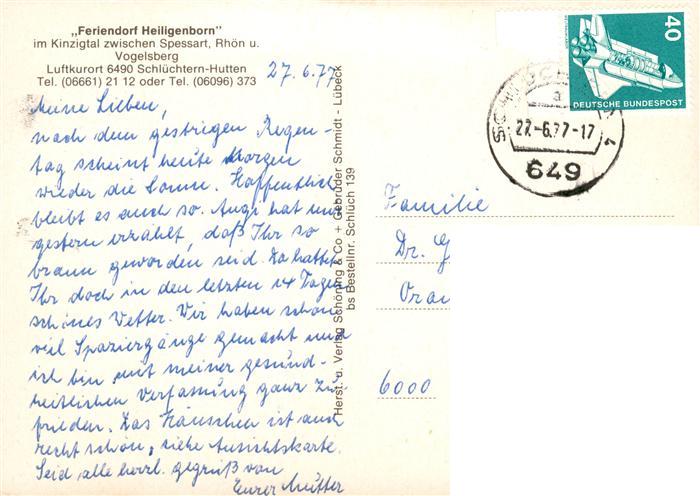 „Feriendorf Heiligenborn"
im Kinzigtal zwischen Spessart, Rhön u.
Vogelsberg
Luftkurort 6490 Schlüchtern-Hutten
Tel. (06661) 21 12 oder Tel. (06096) 373
27.6.77
Meine Lieben,
nach dem gestrigen Regen-
tag scheint heute Morgen
wieder die Sonne. Hoffentlich
bleibt es auch so. Angi hat uns
gestern erzählt, daß Ihr so
braun geworden seid. Da hattet
Ihr doch in den letzten 14 Tagen
schönes Wetter. Wir haben schon
viel Spaziergänge gemacht und
ich bin mit meiner gesund-
heitlichen Verfassung ganz zu-
frieden. Das Häuschen ist auch
recht schön, siehe Ansichtskarte.
Seid alle herzl. gegrüßt von
Eurer Mutter
Herst. u. Verlag Schöning & Co + Gebrüder Schmidt - Lübeck
bs Bestellnr. Schlüch 139
40
DEUTSCHE BUNDESPOST
a
27.-6.77-17
649
Familie
Dr. G
Oran
6000